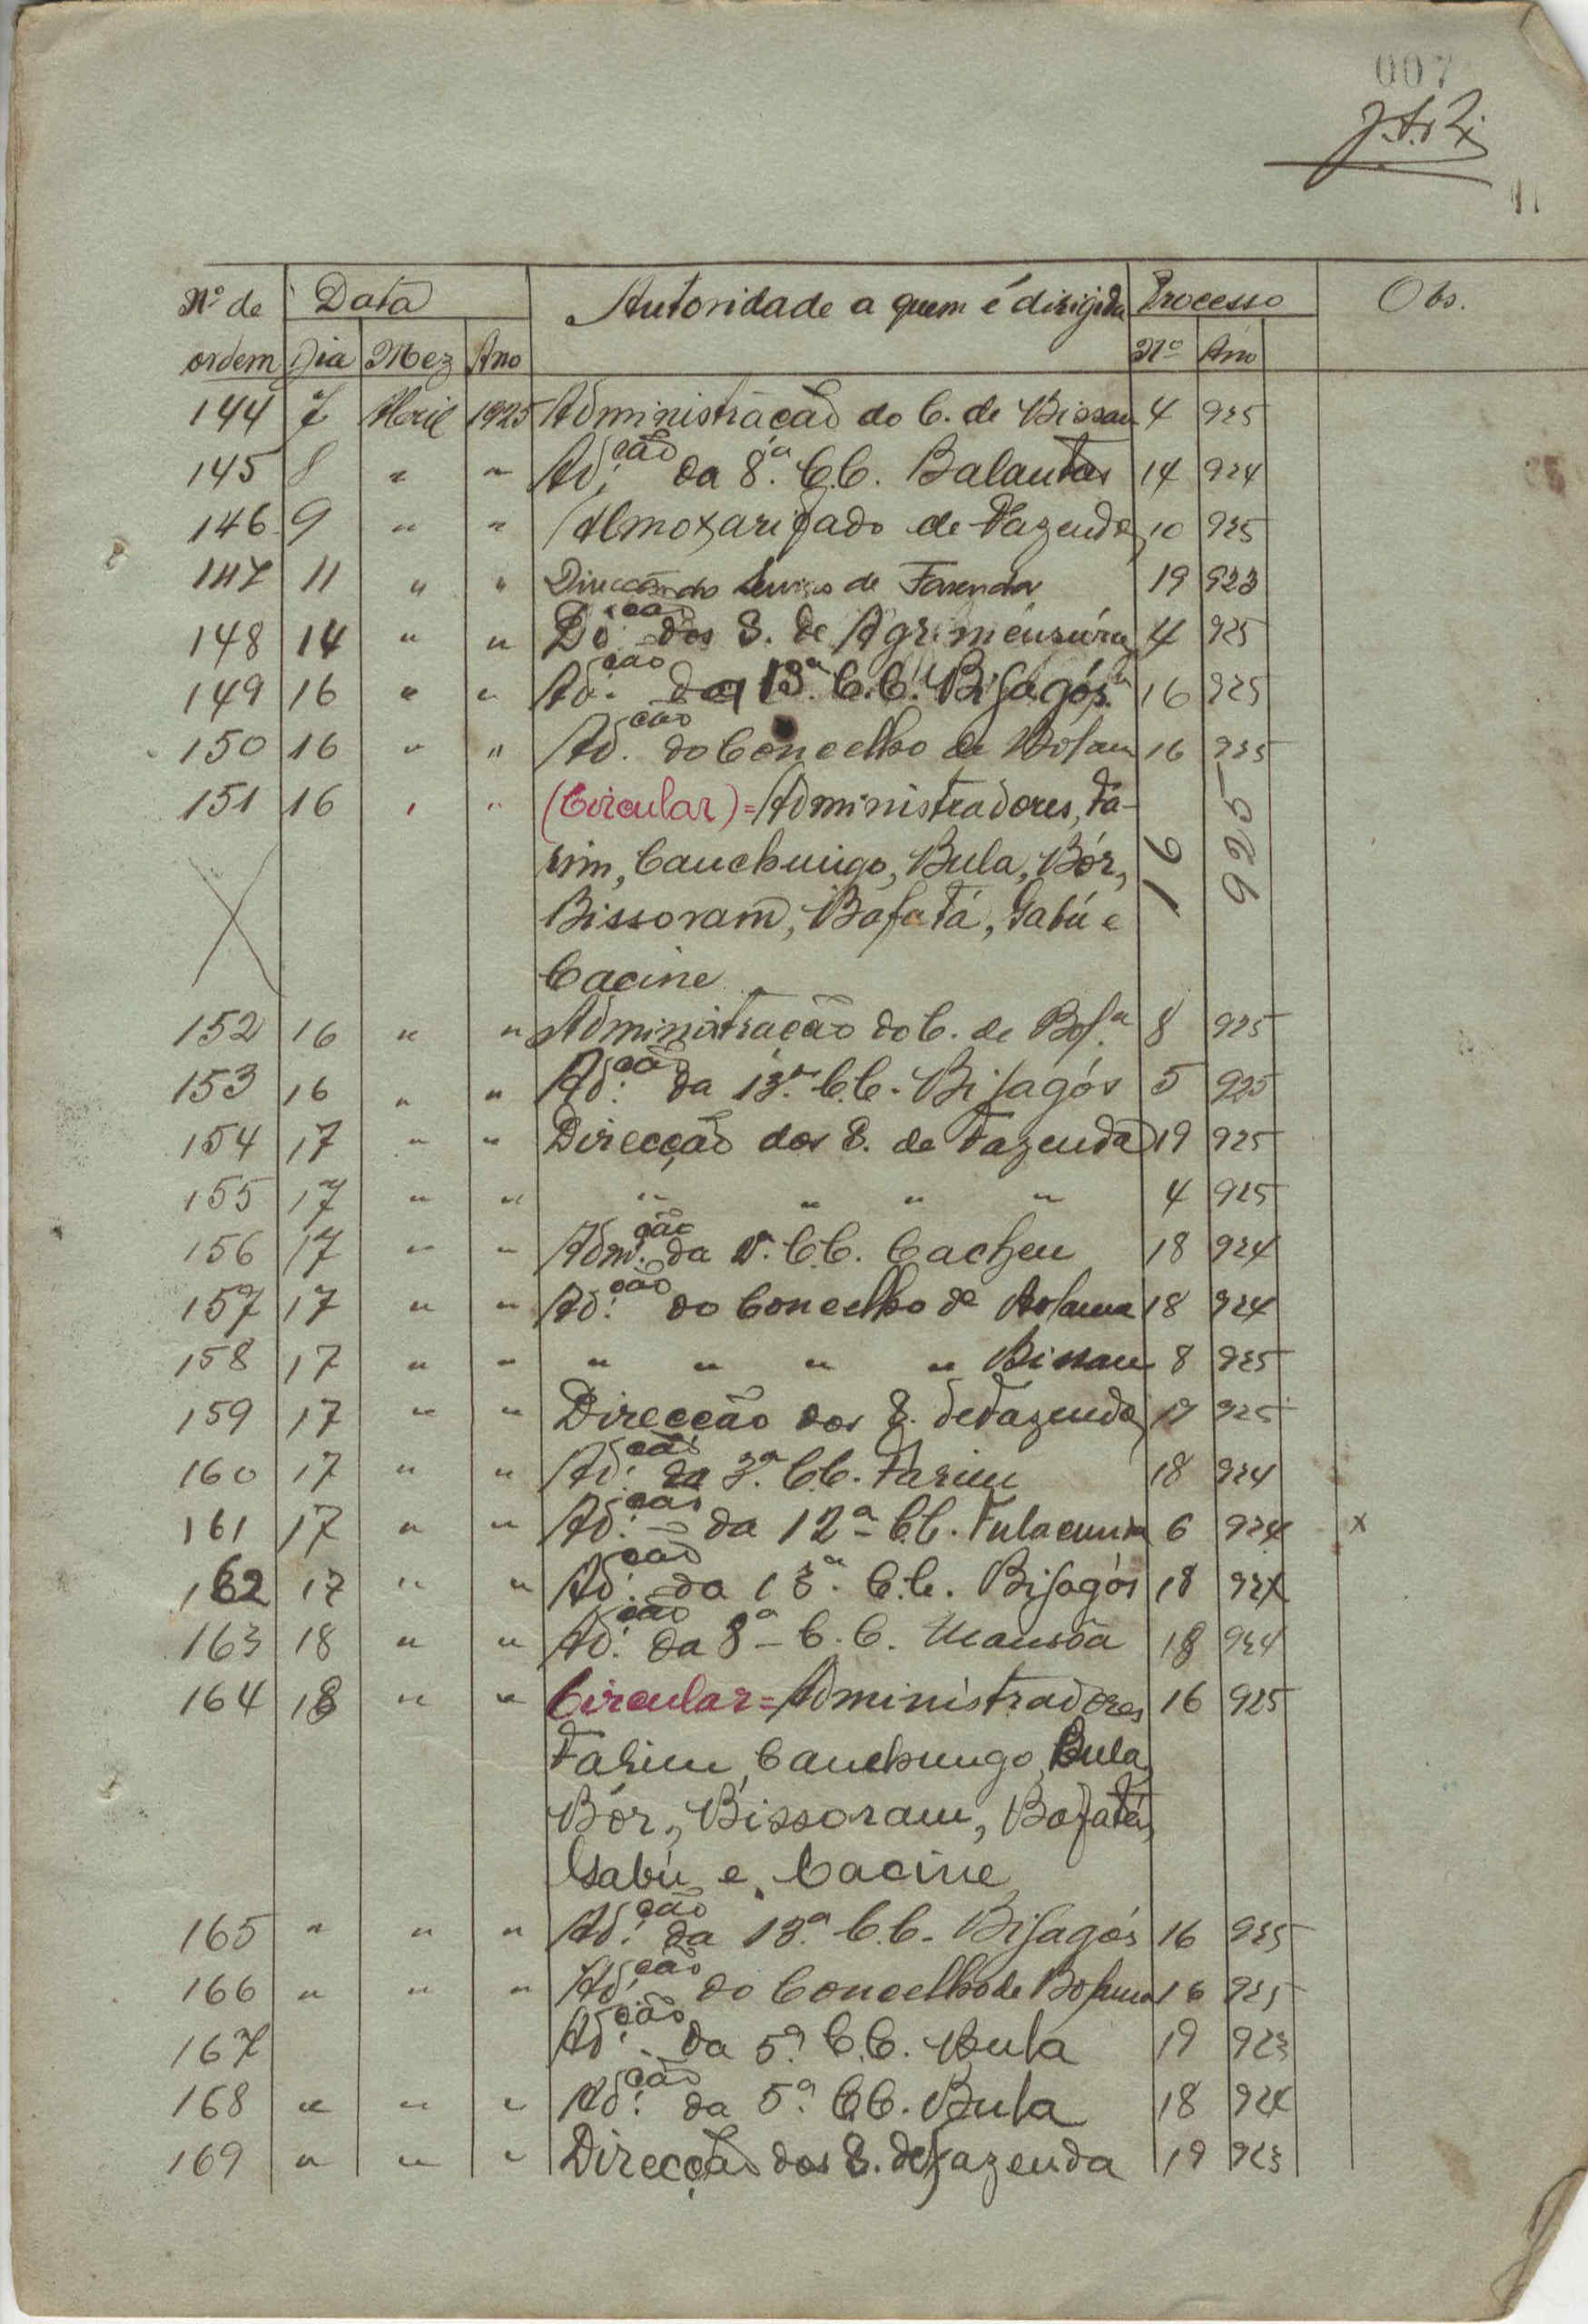 007
11
Nº de Data Autoridade a quem é dirigida Processo Obs.
ordem Dia Mez Ano Nº Ano
144 7 Abril 1925 Administração do C. de Bissau 4 925
145 8 " " Ad.ção da 8.ª C.C. Balantas 14 924
146 9 " " Almoxarifado de Fazenda 10 925
147 11 " " Direcção do Serviço de Fazenda 19 923
148 14 " " Do.ção dos S. de Agrimensúra 4 925
149 16 " " Ad.ção da 13ª C.C. Bijagós 16 925
150 16 " " Ad.ção do Concelho de Bolama 16 925
151 16 " " (Circular) = Administradores, Fa-
rim, Canchungo, Bula, Bór, 16 925
Bissoram, Bafatá, Gabú e
Cacine
152 16 " " Administração do C. de Bol.ª 8 925
153 16 " " Ad.ção da 13.ª C.C. Bijagós 5 925
154 17 " " Direcção dos S. de Fazenda 19 925
155 17 " " " " " " 4 925
156 17 " " Adm.ção da ª C.C. Cacheu 18 924
157 17 " " Ad.ção do Concelho de Bolama 18 924
158 17 " " " " " " Bissau 8 925
159 17 " " Direcção dos S. de Fazenda 19 925
160 17 " " Ad.ção da 3.ª C.C. Farim 18 924
161 17 " " Ad.ção da 12ª C.C. Fulacunda 6 924 x
162 17 " " Ad.ção da 13ª C.C. Bijagós 18 924
163 18 " " Ad.ção da 8ª C.C. Mansôa 18 924
164 18 " " Circular = Administradores 16 925
Farim, Canchungo, Bula,
Bór, Bissoram, Bafatá,
Gabú e Cacine
165 " " " Ad.ção da 13.ª C.C. Bijagós 16 925
166 " " " Ad.ção do Concelho de Bolama 16 925
167 Ad.ção da 5.ª C.C. Bula 19 923
168 " " " Ad.ção da 5.ª C.C. Bula 18 924
169 " " " Direcção dos S. de Fazenda 19 923